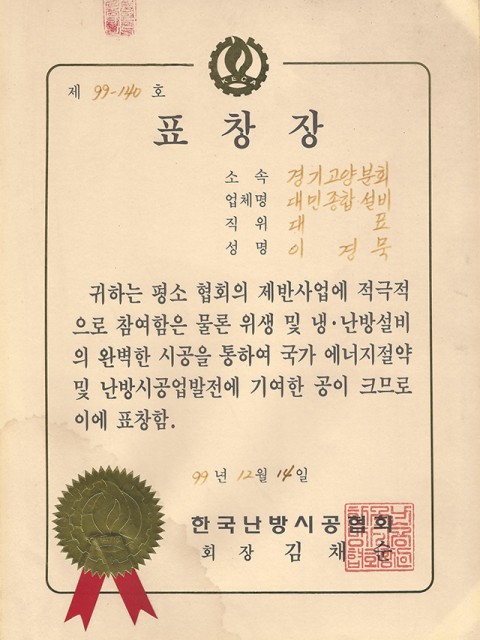 제 99-140 호
표창장
소속 경기고양분회
업체명 대민종합설비
직위 대표
성명 이경묵
귀하는 평소 협회의 제반사업에 적극적
으로 참여함은 물론 위생 및 냉·난방설비
의 완벽한 시공을 통하여 국가 에너지절약
및 난방시공업발전에 기여한 공이 크므로
이에 표창함.
99년 12월 14일
한국난방시공협회
회장 김채순